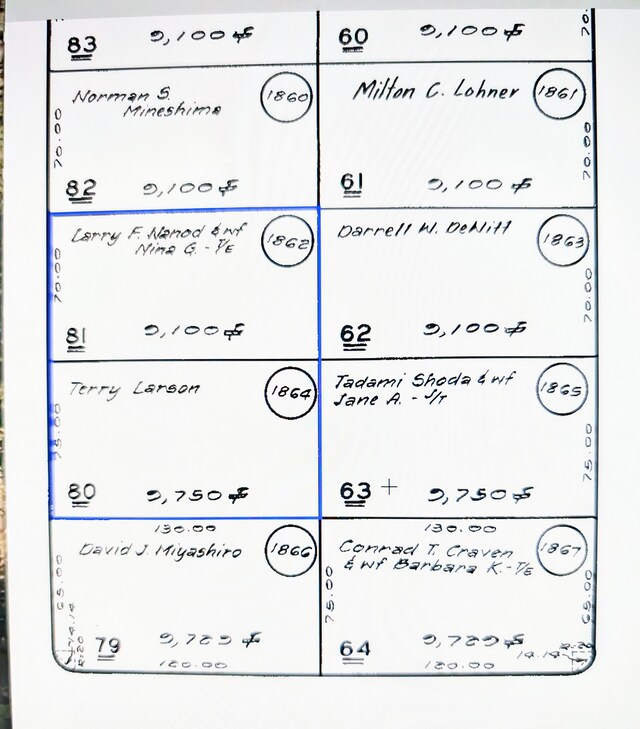 83 9,100 ⌗
60 9,100 ⌗
70.
Norman S.
Mineshima
1860
70.00
82 9,100 ⌗
Milton C. Lohner
1861
70.00
61 9,100 ⌗
Larry F. Nanod & wf
Nina G. - T/E
1862
70.00
81 9,100 ⌗
Darrell W. DeWitt
1863
70.00
62 9,100 ⌗
Terry Larson
1864
75.00
80 9,750 ⌗
Tadami Shoda & wf
Jane A. - J/T
1865
75.00
63 + 9,750 ⌗
130.00
David J. Miyashiro
1866
65.00
14.14
R:20
79 9,729 ⌗
120.00
130.00
Conrad T. Craven
& wf Barbara K. - T/E
1867
75.00
65.00
64 9,729 ⌗
14.14
R:20
120.00